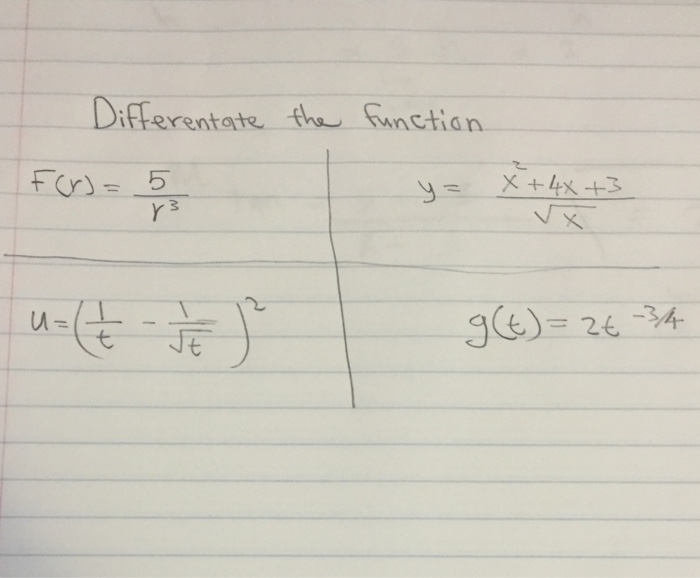 Differentate the function
F(r) = 5/r³
y = x²+4x+3/√x
u=(1/t - 1/√t)²
g(t)= 2t⁻³/⁴